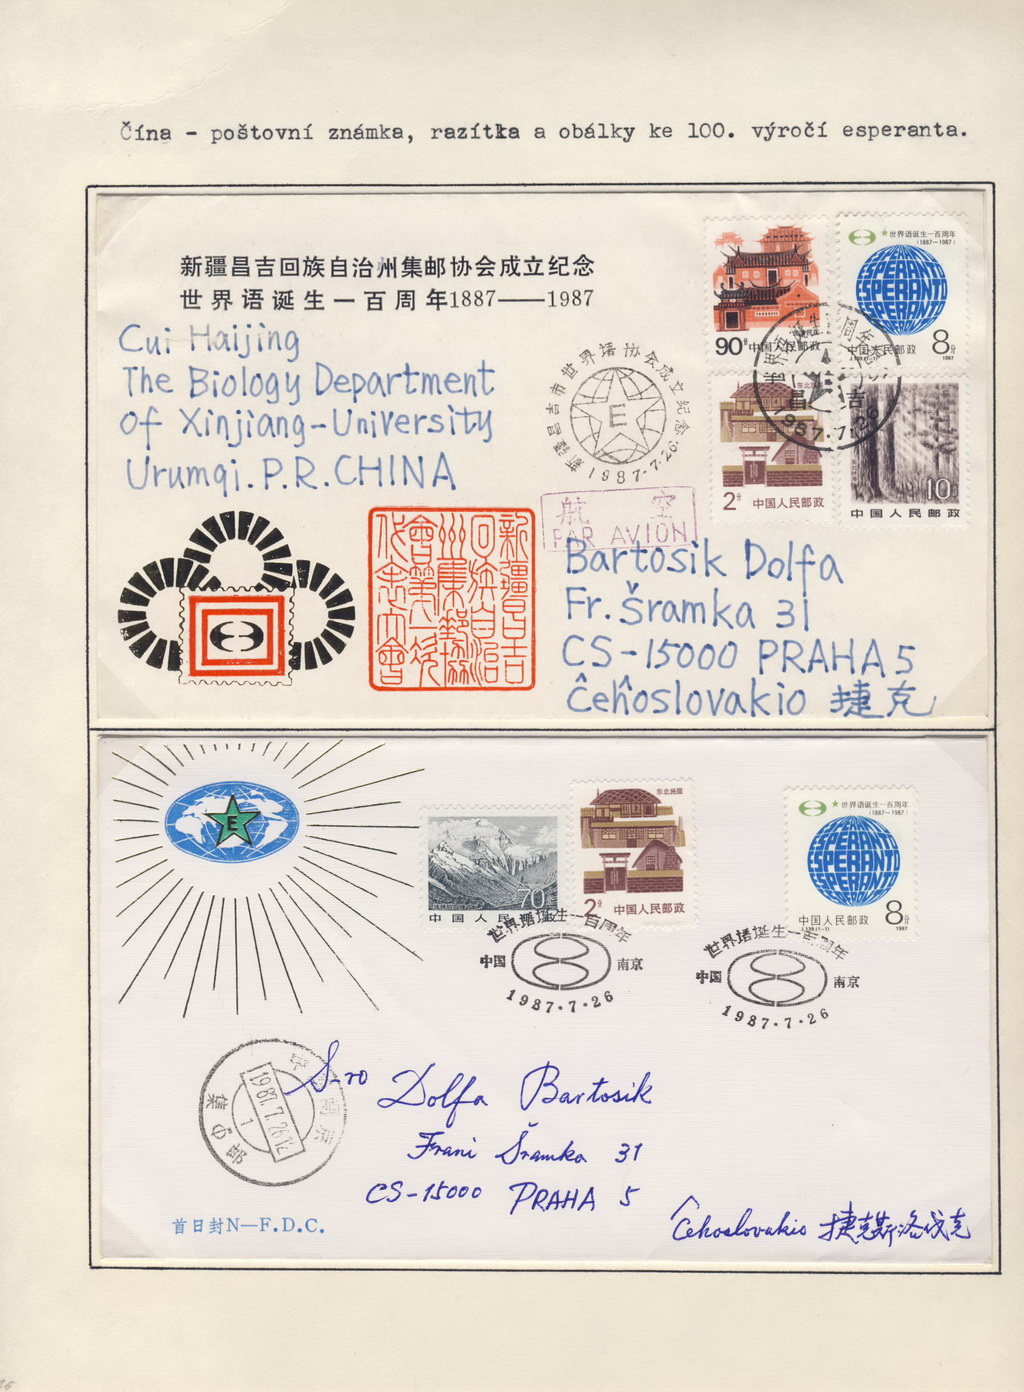 Čína - poštovní známka, razítka a obálky ke 100. výročí esperanta.
新疆昌吉回族自治州集邮协会成立纪念
世界语诞生一百周年1887——1987
Cui Haijing
The Biology Department
of Xinjiang-University
Urumqi. P.R.CHINA
90分 中国人民邮政
世界语诞生一百周年
(1887—1987)
ESPERANTO
ESPERANTO
ESPERANTO
中国人民邮政 8分
1987
东北民居
2分 中国人民邮政
10分
中国人民邮政
昌吉
1987.7.26
新疆昌吉市世界语协会成立纪念
E
1987.7.26
航空
PAR AVION
新疆昌吉
回族自治
州集邮协
会第一次
代表大会
Bartosik Dolfa
Fr. Šramka 31
CS-15000 PRAHA 5
Ĉeĥoslovakio 捷克
E
70分
中国人民邮政
东北民居
2分 中国人民邮政
世界语诞生一百周年
(1887—1987)
ESPERANTO
ESPERANTO
ESPERANTO
中国人民邮政 8分
J.139.(1-1) 1987
世界语诞生一百周年
中国 南京
1987·7·26
世界语诞生一百周年
中国 南京
1987·7·26
南京
1987.7.26.12
1
集邮
S-ro Dolfa Bartosik
Frani Šramka 31
CS-15000 PRAHA 5
Ĉeĥoslovakio 捷克斯洛伐克
首日封N—F.D.C.